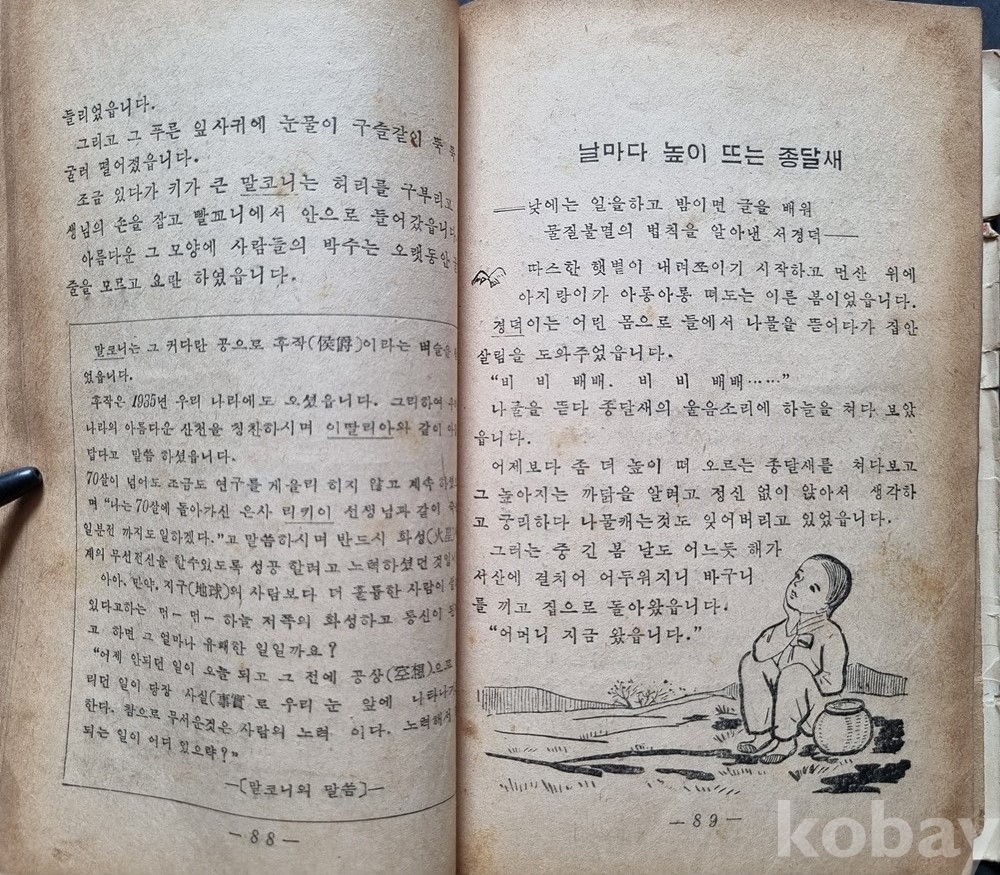 들리었읍니다.
그리고 그 푸른 잎사귀에 눈물이 구슬같이 뚝 뚝
굴러 떨어졌읍니다.
조금 있다가 키가 큰 말코니는 허리를 구부리고
생님의 손을 잡고 빨꼬니에서 안으로 들어갔읍니다.
아름다운 그 모양에 사람들의 박수는 오랫동안
줄을 모르고 요란 하였읍니다.
말코니는 그 커다란 공으로 후작(侯爵)이라는 벼슬을
었읍니다.
후작은 1935년 우리 나라에도 오셨읍니다. 그리하여
나라의 아름다운 산천을 칭찬하시며 이딸리아와 같이
답다고 말씀 하셨읍니다.
70살이 넘어도 조금도 연구를 게을리 히지 않고 계속
며 “나는 70살에 돌아가신 은사 리키이 선생님과 같이
일분전 까지도 일하겠다.”고 말씀하시며 반드시 화성(火星)
계의 무선전신을 할수있도록 성공 할려고 노력하셨던 것입
아아, 만약, 지구(地球)의 사람보다 더 훌륭한 사람이
있다고하는 먼— 먼— 하늘 저쪽의 화성하고 통신이
고 하면 그 얼마나 유쾌한 일일까요?
“어제 안되던 일이 오늘 되고 그 전에 공상(空想)으로
리던 일이 당장 사실(事實)로 우리 눈 앞에 나타나
한다. 참으로 무서운것은 사람의 노력 이다. 노력해서
되는 일이 어디 있으랴?”
—[말코니의 말씀]—
—88—
날마다 높이 뜨는 종달새
——낮에는 일을하고 밤이면 글을 배워
물질불멸의 법칙을 알아낸 서경덕——
따스한 햇볕이 내려쪼이기 시작하고 먼산 위에
아지랑이가 아롱아롱 떠도는 이른 봄이었읍니다.
경덕이는 어린 몸으로 들에서 나물을 뜯어다가 집안
살림을 도와주었읍니다.
“비 비 배배. 비 비 배배……”
나물을 뜯다 종달새의 울음조리에 하늘을 쳐다 보았
읍니다.
어제보다 좀 더 높이 떠 오르는 종달새를 쳐다보고
그 높아지는 까닭을 알려고 정신 없이 앉아서 생각하
고 궁리하다 나물캐는것도 잊어버리고 있었읍니다.
그러는 중 긴 봄 날도 어느듯 해가
서산에 걸치어 어두워지니 바구니
를 끼고 집으로 돌아왔읍니다.
“어머니 지금 왔읍니다.”
—89—
kobay